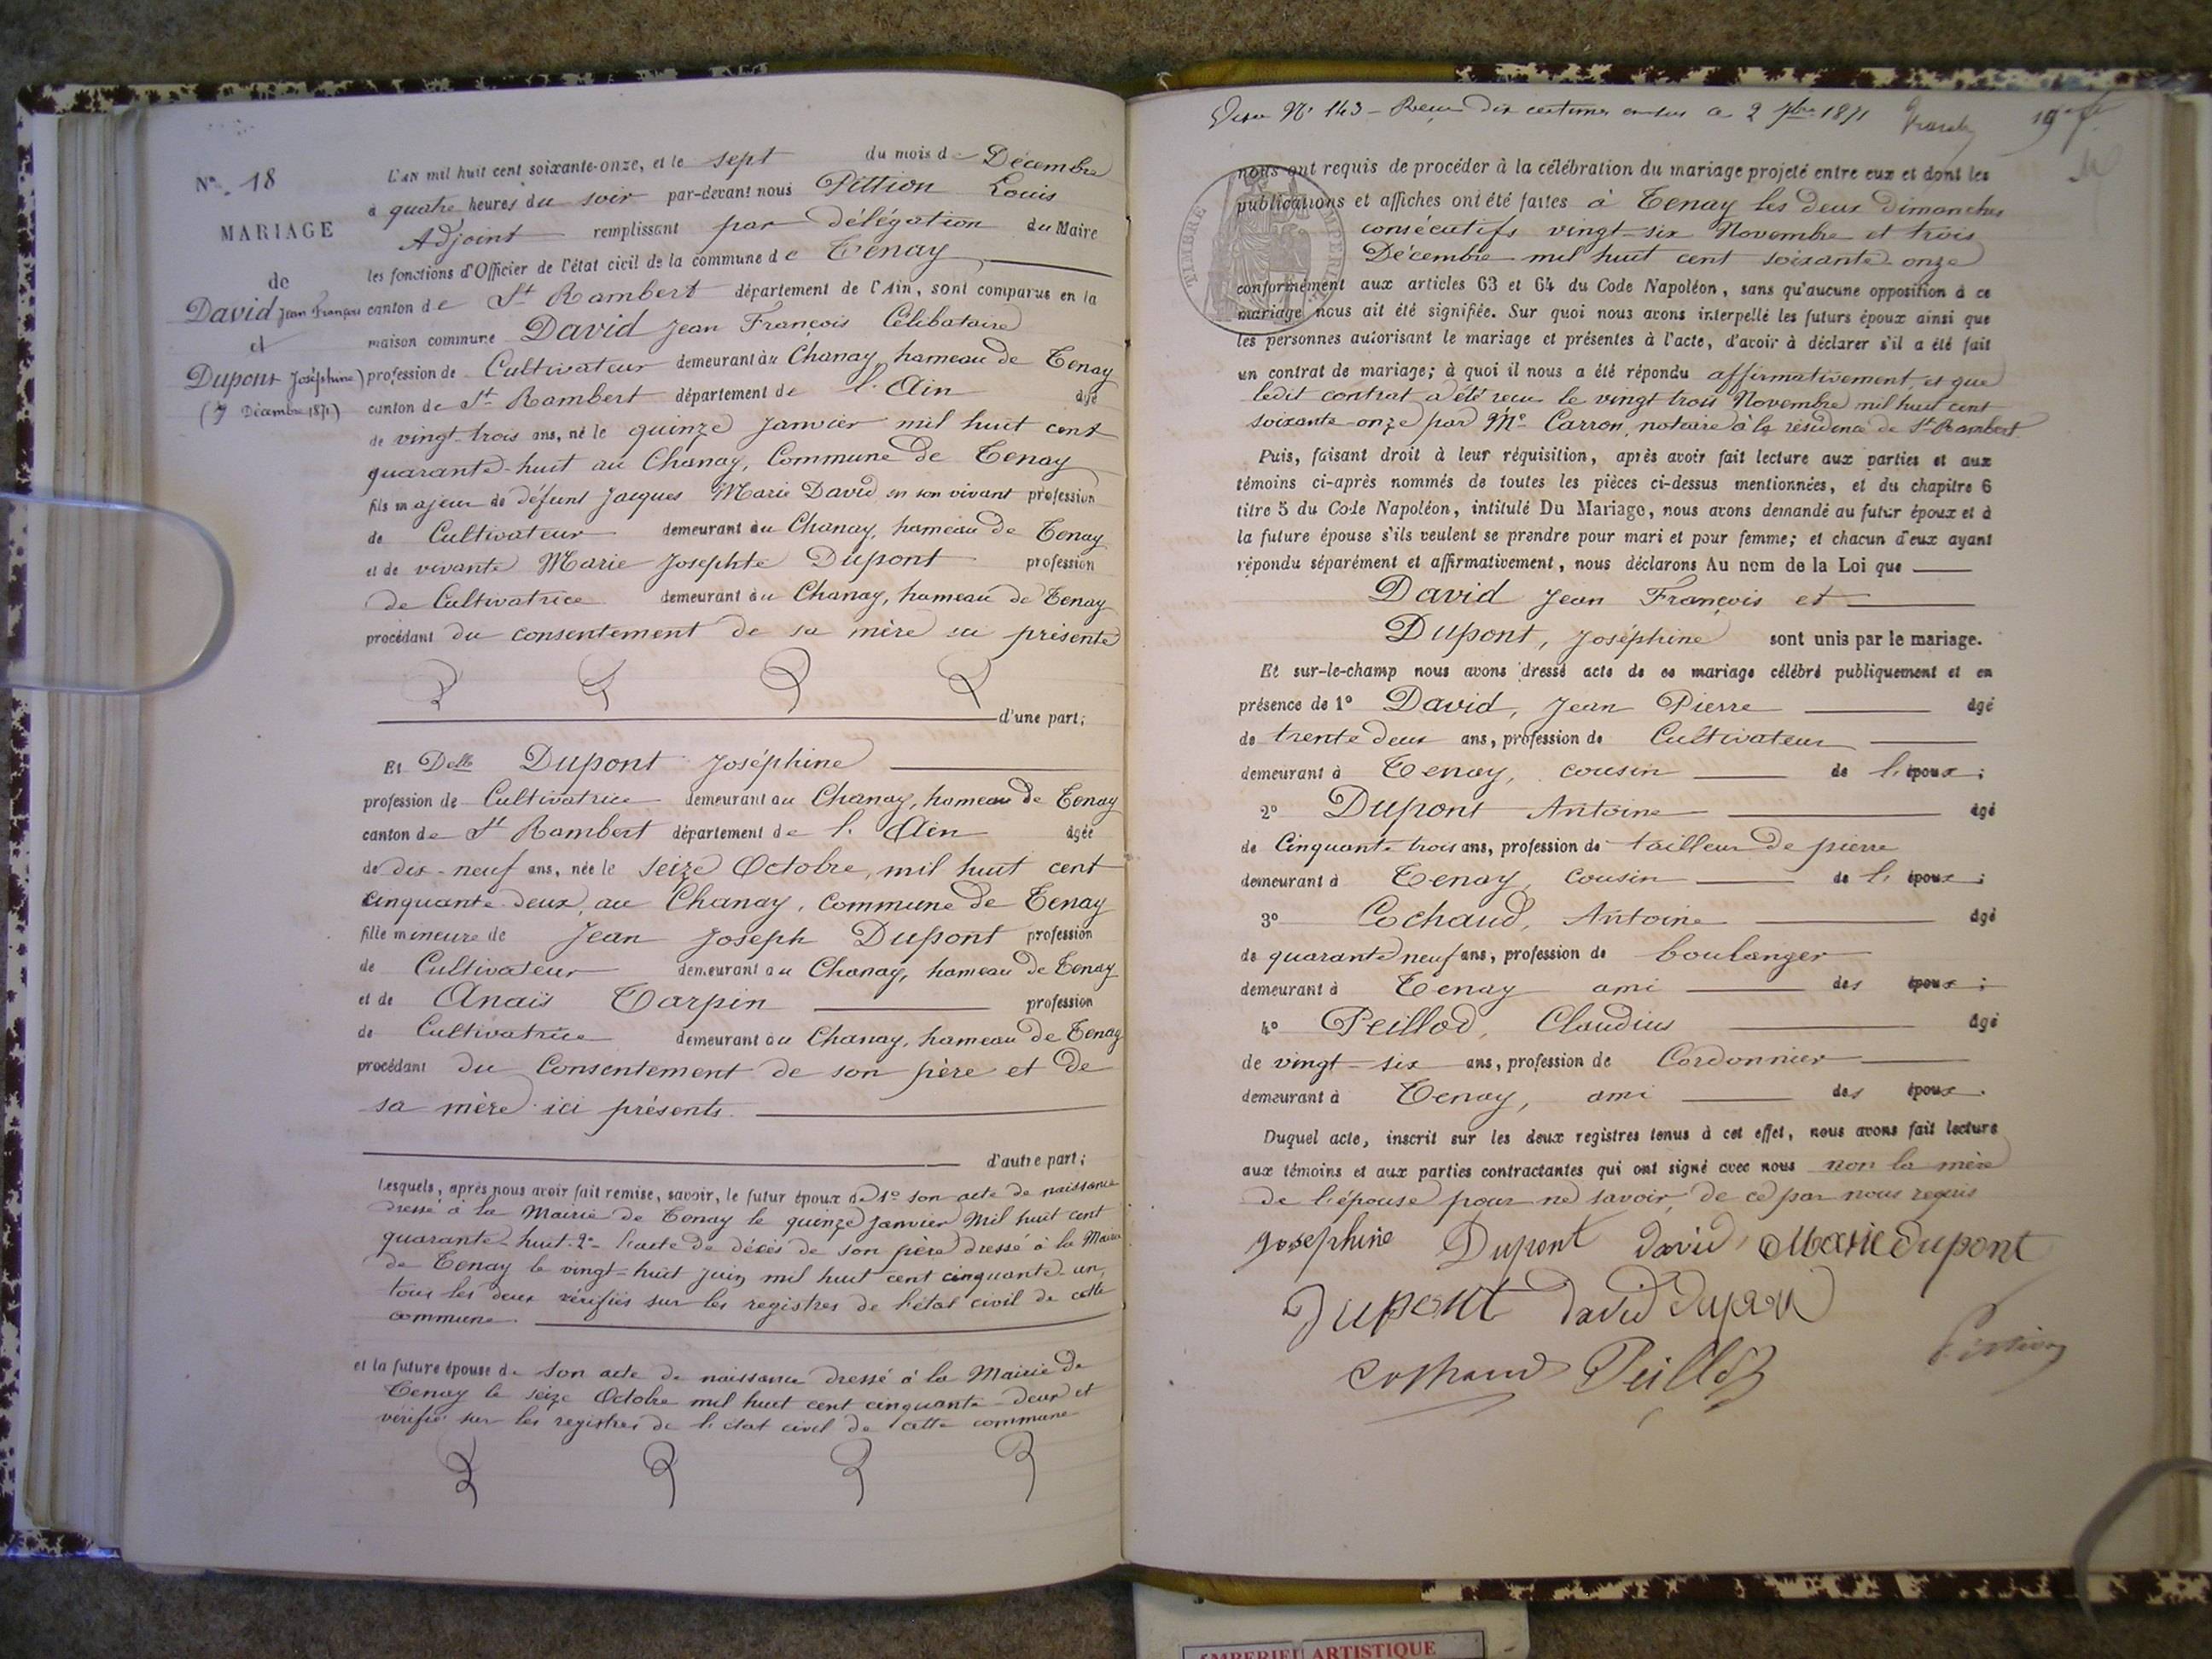 N° 18
MARIAGE
de
David Jean François
et
Dupont Joséphine
(7 Décembre 1871)
L'AN mil huit cent soixante-onze, et le sept du mois de Décembre
à quatre heures du soir par-devant nous Pittion Louis
Adjoint remplissant par délégation du Maire
les fonctions d'Officier de l'état civil de la commune de Tenay
canton de St Rambert département de l'Ain, sont comparus en la
maison commune David Jean François Célibataire
profession de Cultivateur demeurant au Chanay, hameau de Tenay
canton de St Rambert département de l'Ain âgé
de vingt-trois ans, né le quinze Janvier mil huit cent
quarante-huit au Chanay, Commune de Tenay
fils majeur de défunt Jacques Marie David en son vivant profession
de Cultivateur demeurant au Chanay, hameau de Tenay
et de vivante Marie Josephte Dupont profession
de Cultivatrice demeurant au Chanay, hameau de Tenay
procédant du consentement de sa mère ici présente
d'une part;
Et Delle Dupont Joséphine
profession de Cultivatrice demeurant au Chanay, hameau de Tenay
canton de St Rambert département de l'Ain âgée
de dix-neuf ans, née le seize Octobre, mil huit cent
cinquante-deux, au Chanay, Commune de Tenay
fille mineure de Jean Joseph Dupont profession
de Cultivateur demeurant au Chanay, hameau de Tenay
et de Anaïs Tarpin profession
de Cultivatrice demeurant au Chanay, hameau de Tenay
procédant du Consentement de son père et de
sa mère ici présents.
d'autre part;
Lesquels, après nous avoir fait remise, savoir, le futur époux de 1° son acte de naissance
dressé à la Mairie de Tenay le quinze Janvier Mil huit cent
quarante-huit. 2° l'acte de décès de son père dressé à la Mairie
de Tenay le vingt-huit Juin mil huit cent cinquante-un,
tous les deux vérifiés sur les registres de l'état civil de cette
commune.
et la future épouse de son acte de naissance dressé à la Mairie de
Tenay le seize Octobre mil huit cent cinquante-deux et
vérifié sur les registres de l'état civil de cette commune
Visa N° 143 - Reçu dix centimes en sus a 2 7bre 1871
TIMBRE IMPERIAL
nous ont requis de procéder à la célébration du mariage projeté entre eux et dont les
publications et affiches ont été faites à Tenay les deux dimanches
consécutifs vingt-six Novembre et trois
Décembre mil huit cent soixante-onze
conformément aux articles 63 et 64 du Code Napoléon, sans qu'aucune opposition à ce
mariage nous ait été signifiée. Sur quoi nous avons interpellé les futurs époux ainsi que
les personnes autorisant le mariage et présentes à l'acte, d'avoir à déclarer s'il a été fait
un contrat de mariage; à quoi il nous a été répondu affirmativement, et que
ledit contrat a été reçu le vingt-trois Novembre mil huit cent
soixante-onze par Me Carron, notaire à la résidence de St Rambert.
Puis, faisant droit à leur réquisition, après avoir fait lecture aux parties et aux
témoins ci-après nommés de toutes les pièces ci-dessus mentionnées, et du chapitre 6
titre 5 du Code Napoléon, intitulé Du Mariage, nous avons demandé au futur époux et à
la future épouse s'ils veulent se prendre pour mari et pour femme; et chacun d'eux ayant
répondu séparément et affirmativement, nous déclarons Au nom de la Loi que
David Jean François et
Dupont, Joséphine sont unis par le mariage.
Et sur-le-champ nous avons dressé acte de ce mariage célébré publiquement et en
présence de 1° David, Jean Pierre âgé
de trente deux ans, profession de Cultivateur
demeurant à Tenay, cousin de l'époux;
2° Dupont Antoine âgé
de Cinquante trois ans, profession de tailleur de pierre
demeurant à Tenay, cousin de l'époux;
3° Cochaud, Antoine âgé
de quarante neuf ans, profession de boulanger
demeurant à Tenay ami des époux;
4° Peillod, Claudius âgé
de vingt-six ans, profession de Cordonnier
demeurant à Tenay, ami des époux.
Duquel acte, inscrit sur les deux registres tenus à cet effet, nous avons fait lecture
aux témoins et aux parties contractantes qui ont signé avec nous non la mère
de l'épouse pour ne savoir, de ce par nous requis
Josephine Dupont david Marie dupont
Dupont David dupon
Peillod Pittion
AMBERIEU ARTISTIQUE